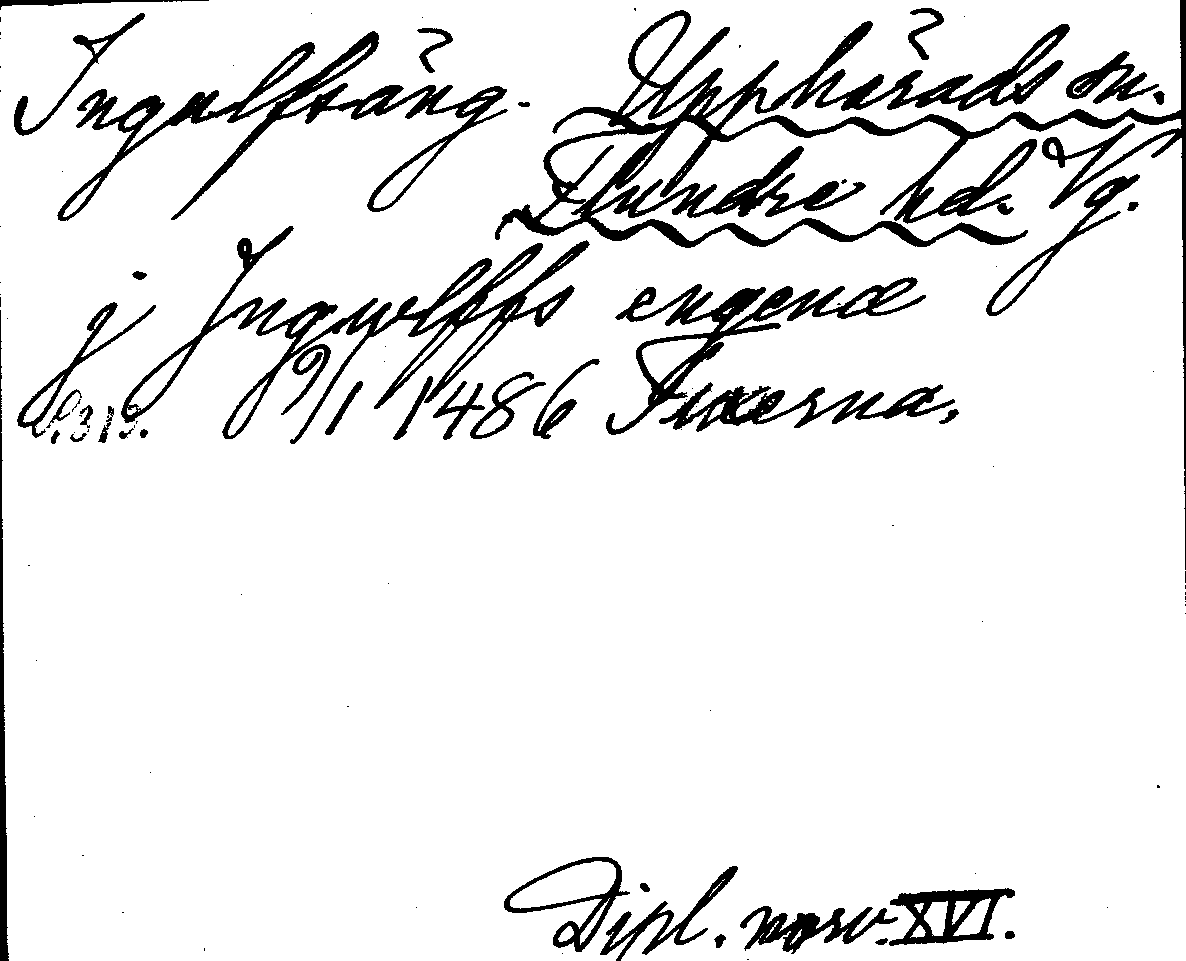 Ingulfsäng. Upphärads sn.
Flundre hd. Vg.
j Jngwlffs engenæ
s. 319. 9/1 1486 Fuxerna.
Dipl. norv. XVI.